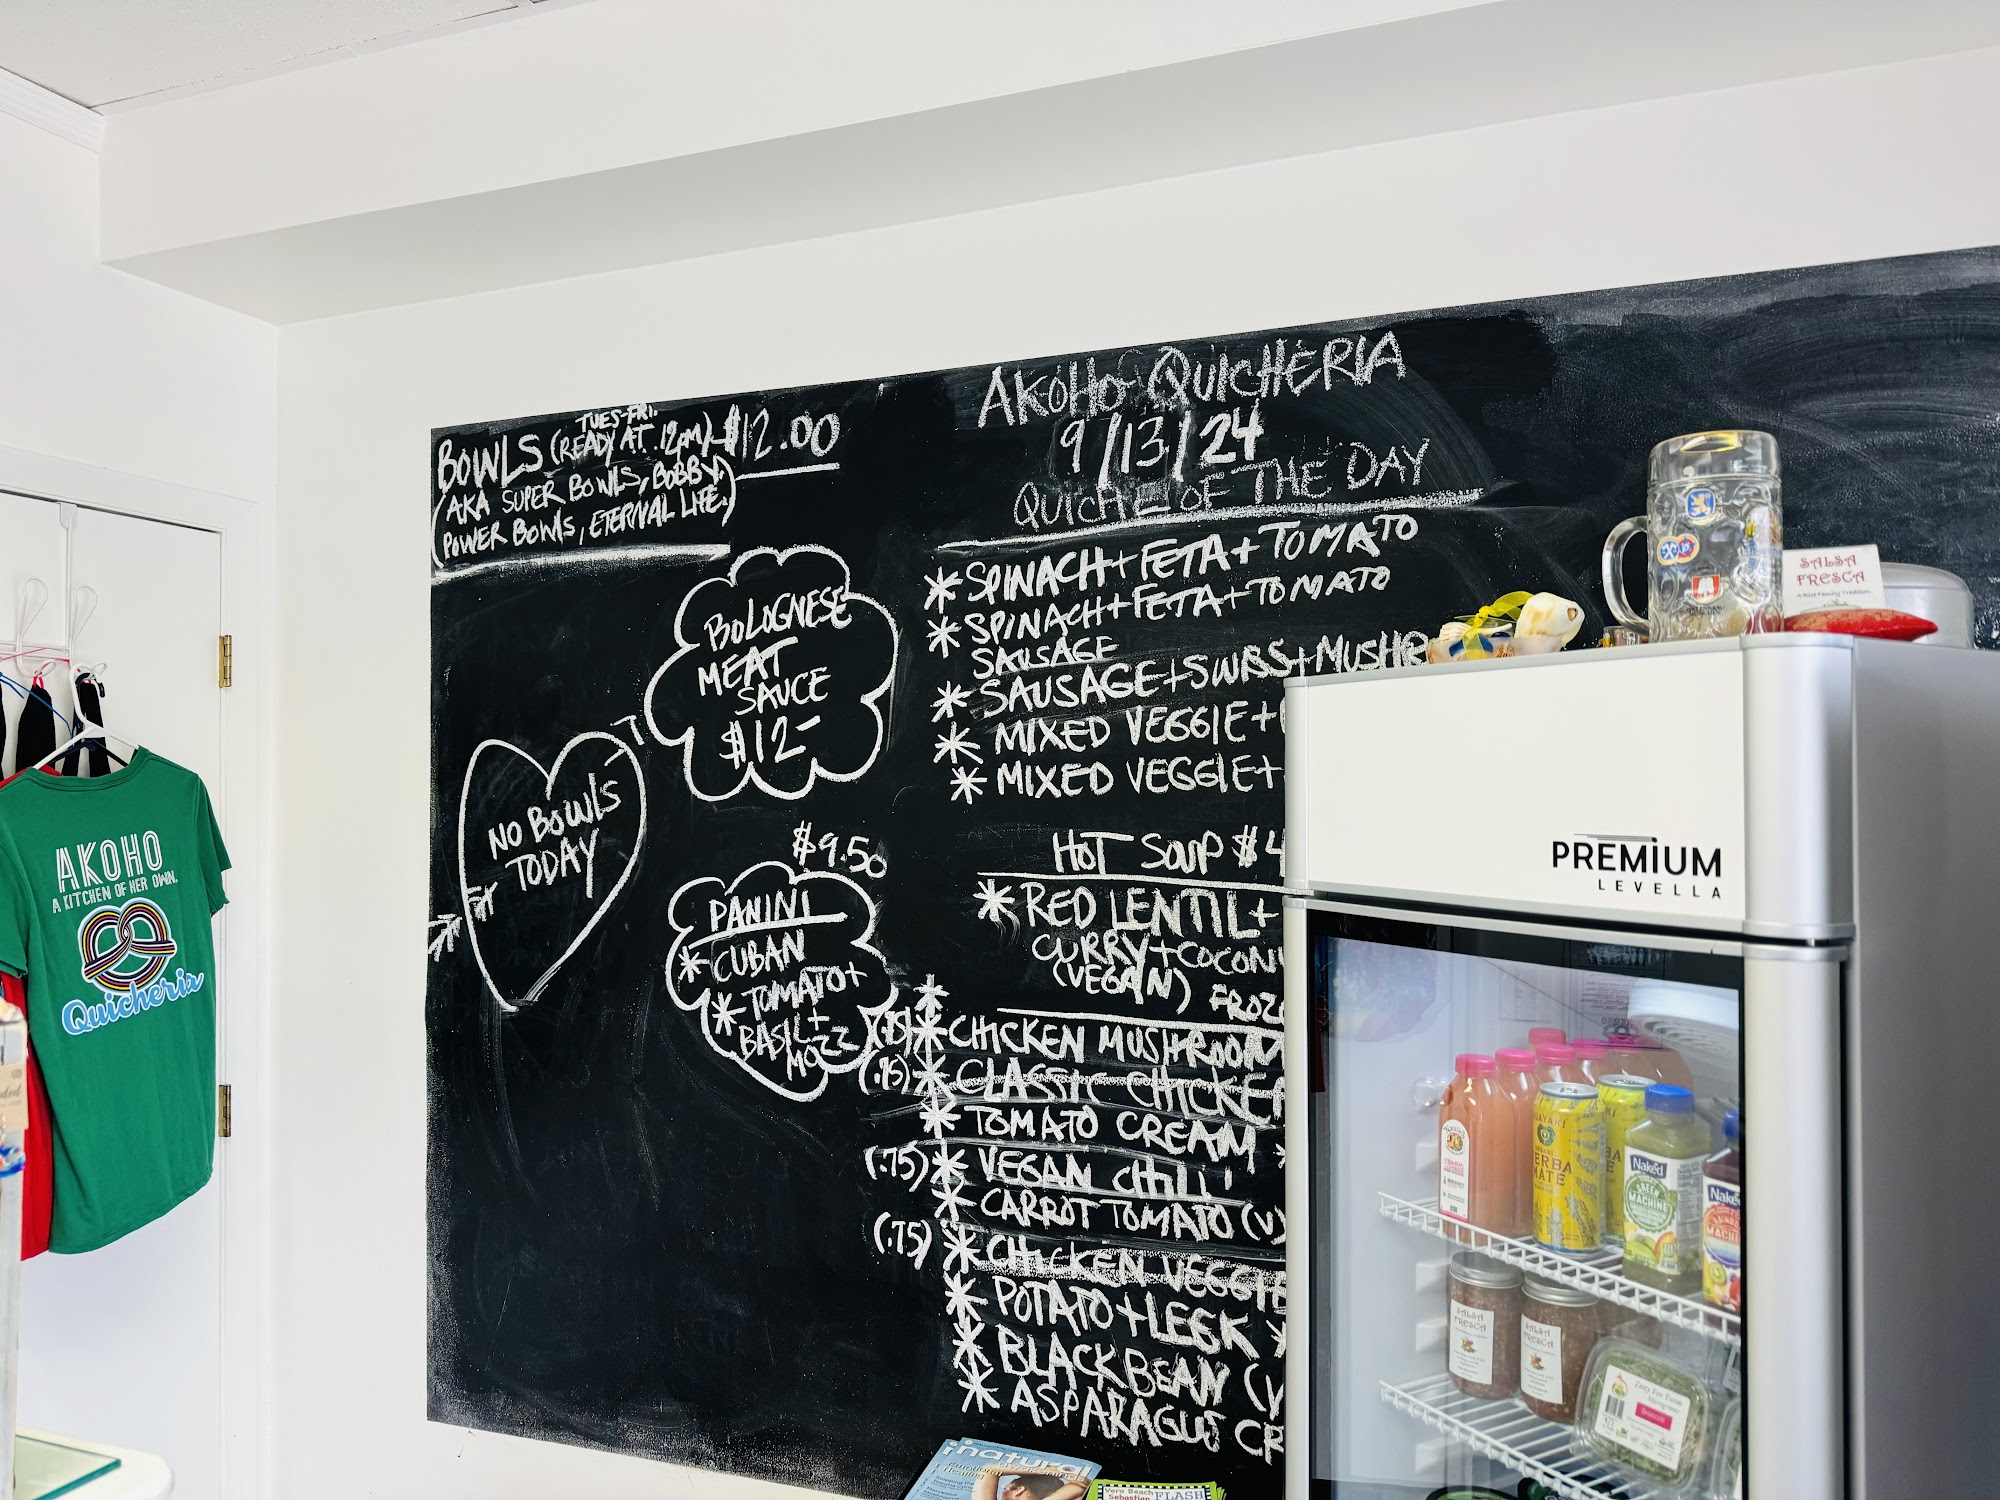 TUES-FRI.
BOWLS (READY AT 12pm) $12.00
(AKA SUPER BOWLS, BOBBY.
POWER BOWLS, ETERNAL LIFE.)
BOLOGNESE
MEAT
SAUCE
$12-
NO BOWLS
TODAY
$9.50
PANINI
* CUBAN
* TOMATO+
BASIL+
MOZZ
AKOHO QUICHERIA
9/13/24
QUICHE OF THE DAY
* SPINACH+FETA+TOMATO
* SPINACH+FETA+TOMATO
SAUSAGE
* SAUSAGE+SWISS+MUSHR
* MIXED VEGGIE+
* MIXED VEGGIE+
HOT SOUP $4
* RED LENTIL+
CURRY+COCONU
(VEGAN)
FROZE
(.75) * CHICKEN MUSHROOM
(.75) * CLASSIC CHICKEN
* TOMATO CREAM *
(.75) * VEGAN CHILI
* CARROT TOMATO (V)
(.75) * CHICKEN VEGGIE
* POTATO+LEEK *
* BLACK BEAN (V
* ASPARAGUS CR
AKOHO
A KITCHEN OF HER OWN.
Quicheria
SALSA
FRESCA
A Rist Family Tradition
PREMiUM
LEVELLA
GUAYAKI
YERBA
MATE
Naked
GREEN
MACHINE
Naked
RAINBOW
MACHINE
SALSA
FRESCA
SALSA
FRESCA
Broccoli
natural
awakenings
Vero Beach
Sebastian FLASH